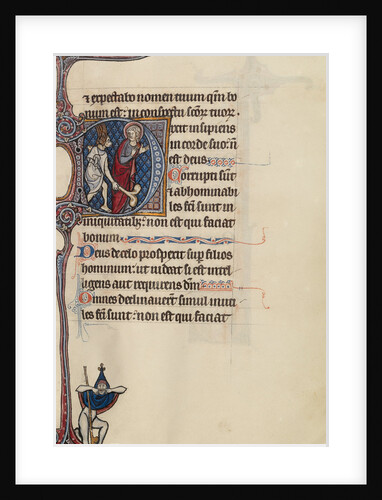 ⁊ expectabo nomen tuum qm̄ bo
num est: in conspectu scōꝝ tuoꝝ.
ixit insipiens
in corde suo: nō
est deus
Corrupti sūt
⁊ abhominabi
les fc̄i sunt in
iniquitatibꝫ: non est qui faciat
bonum
Deus de celo prospexit suꝑ filios
hominum: ut uideat si est intel
ligens aut requirens dm̄
Omnes declinauerūt simul inuti
les fc̄i sunt: non est qui faciat